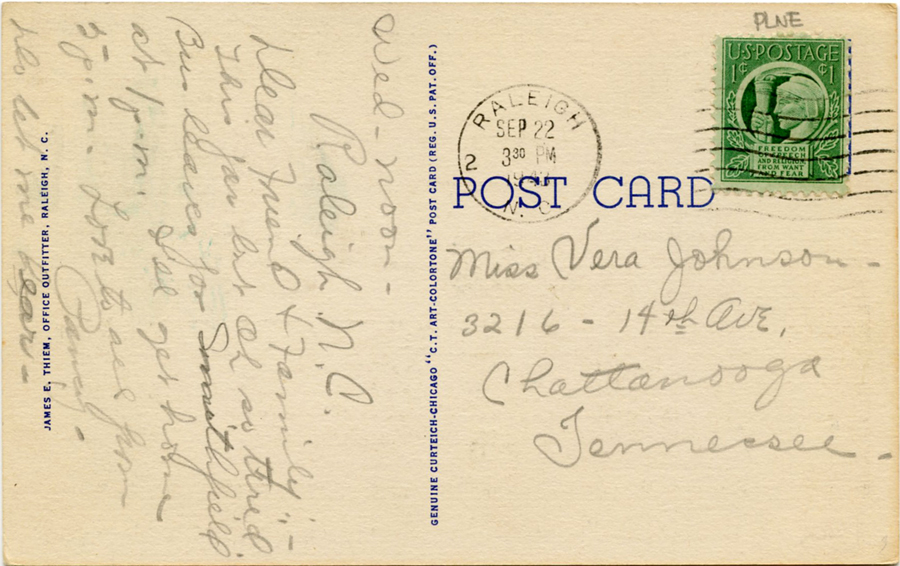 PLNE
U·S·POSTAGE
1¢ ¢1
FREEDOM
OF SPEECH
AND RELIGION
FROM WANT
AND FEAR
RALEIGH
SEP 22
3 30 PM
1943
N. C.
2
POST CARD
Miss Vera Johnson-
3216 - 14th Ave,
Chattanooga
Tennessee -
GENUINE CURTEICH-CHICAGO "C.T. ART-COLORTONE" POST CARD (REG. U.S. PAT. OFF.)
Wed - noon -
Raleigh N.C.
Dear Friend & Family" -
This far but oh so tired
Bus leaves for Smithfield
at 1 p.m. I'll get home
5 p.m. Love to all from
Do let me hear -
JAMES E. THIEM, OFFICE OUTFITTER, RALEIGH, N. C.